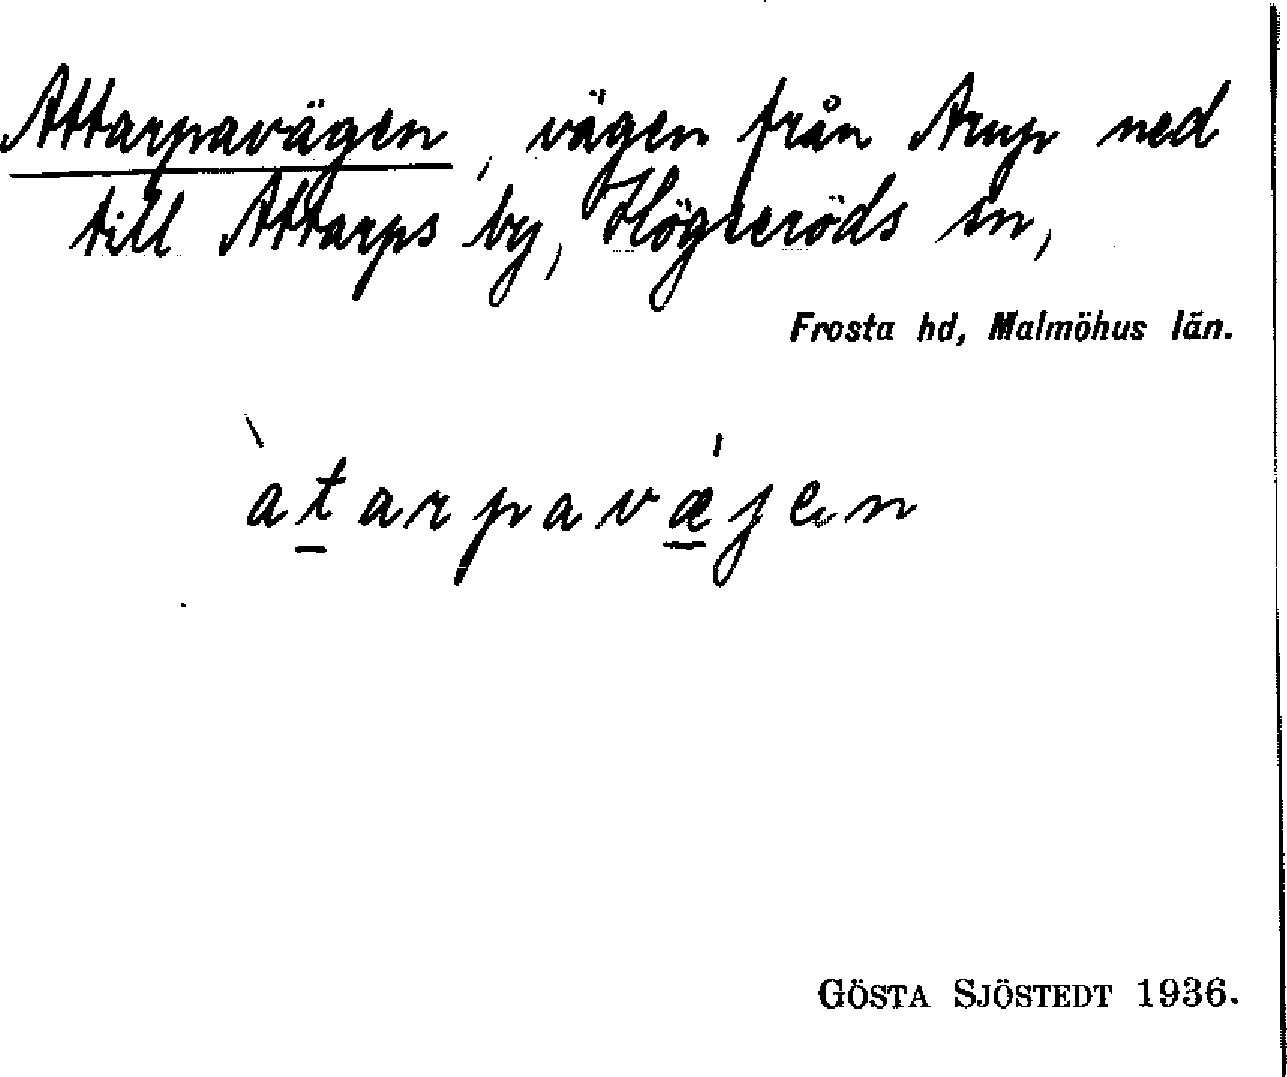 Attarpavägen, vägen från Arup ned
till Attarps by, Högseröds sn,
Frosta hd, Malmöhus län.
àtarpavǽjen
GÖSTA SJÖSTEDT 1936.